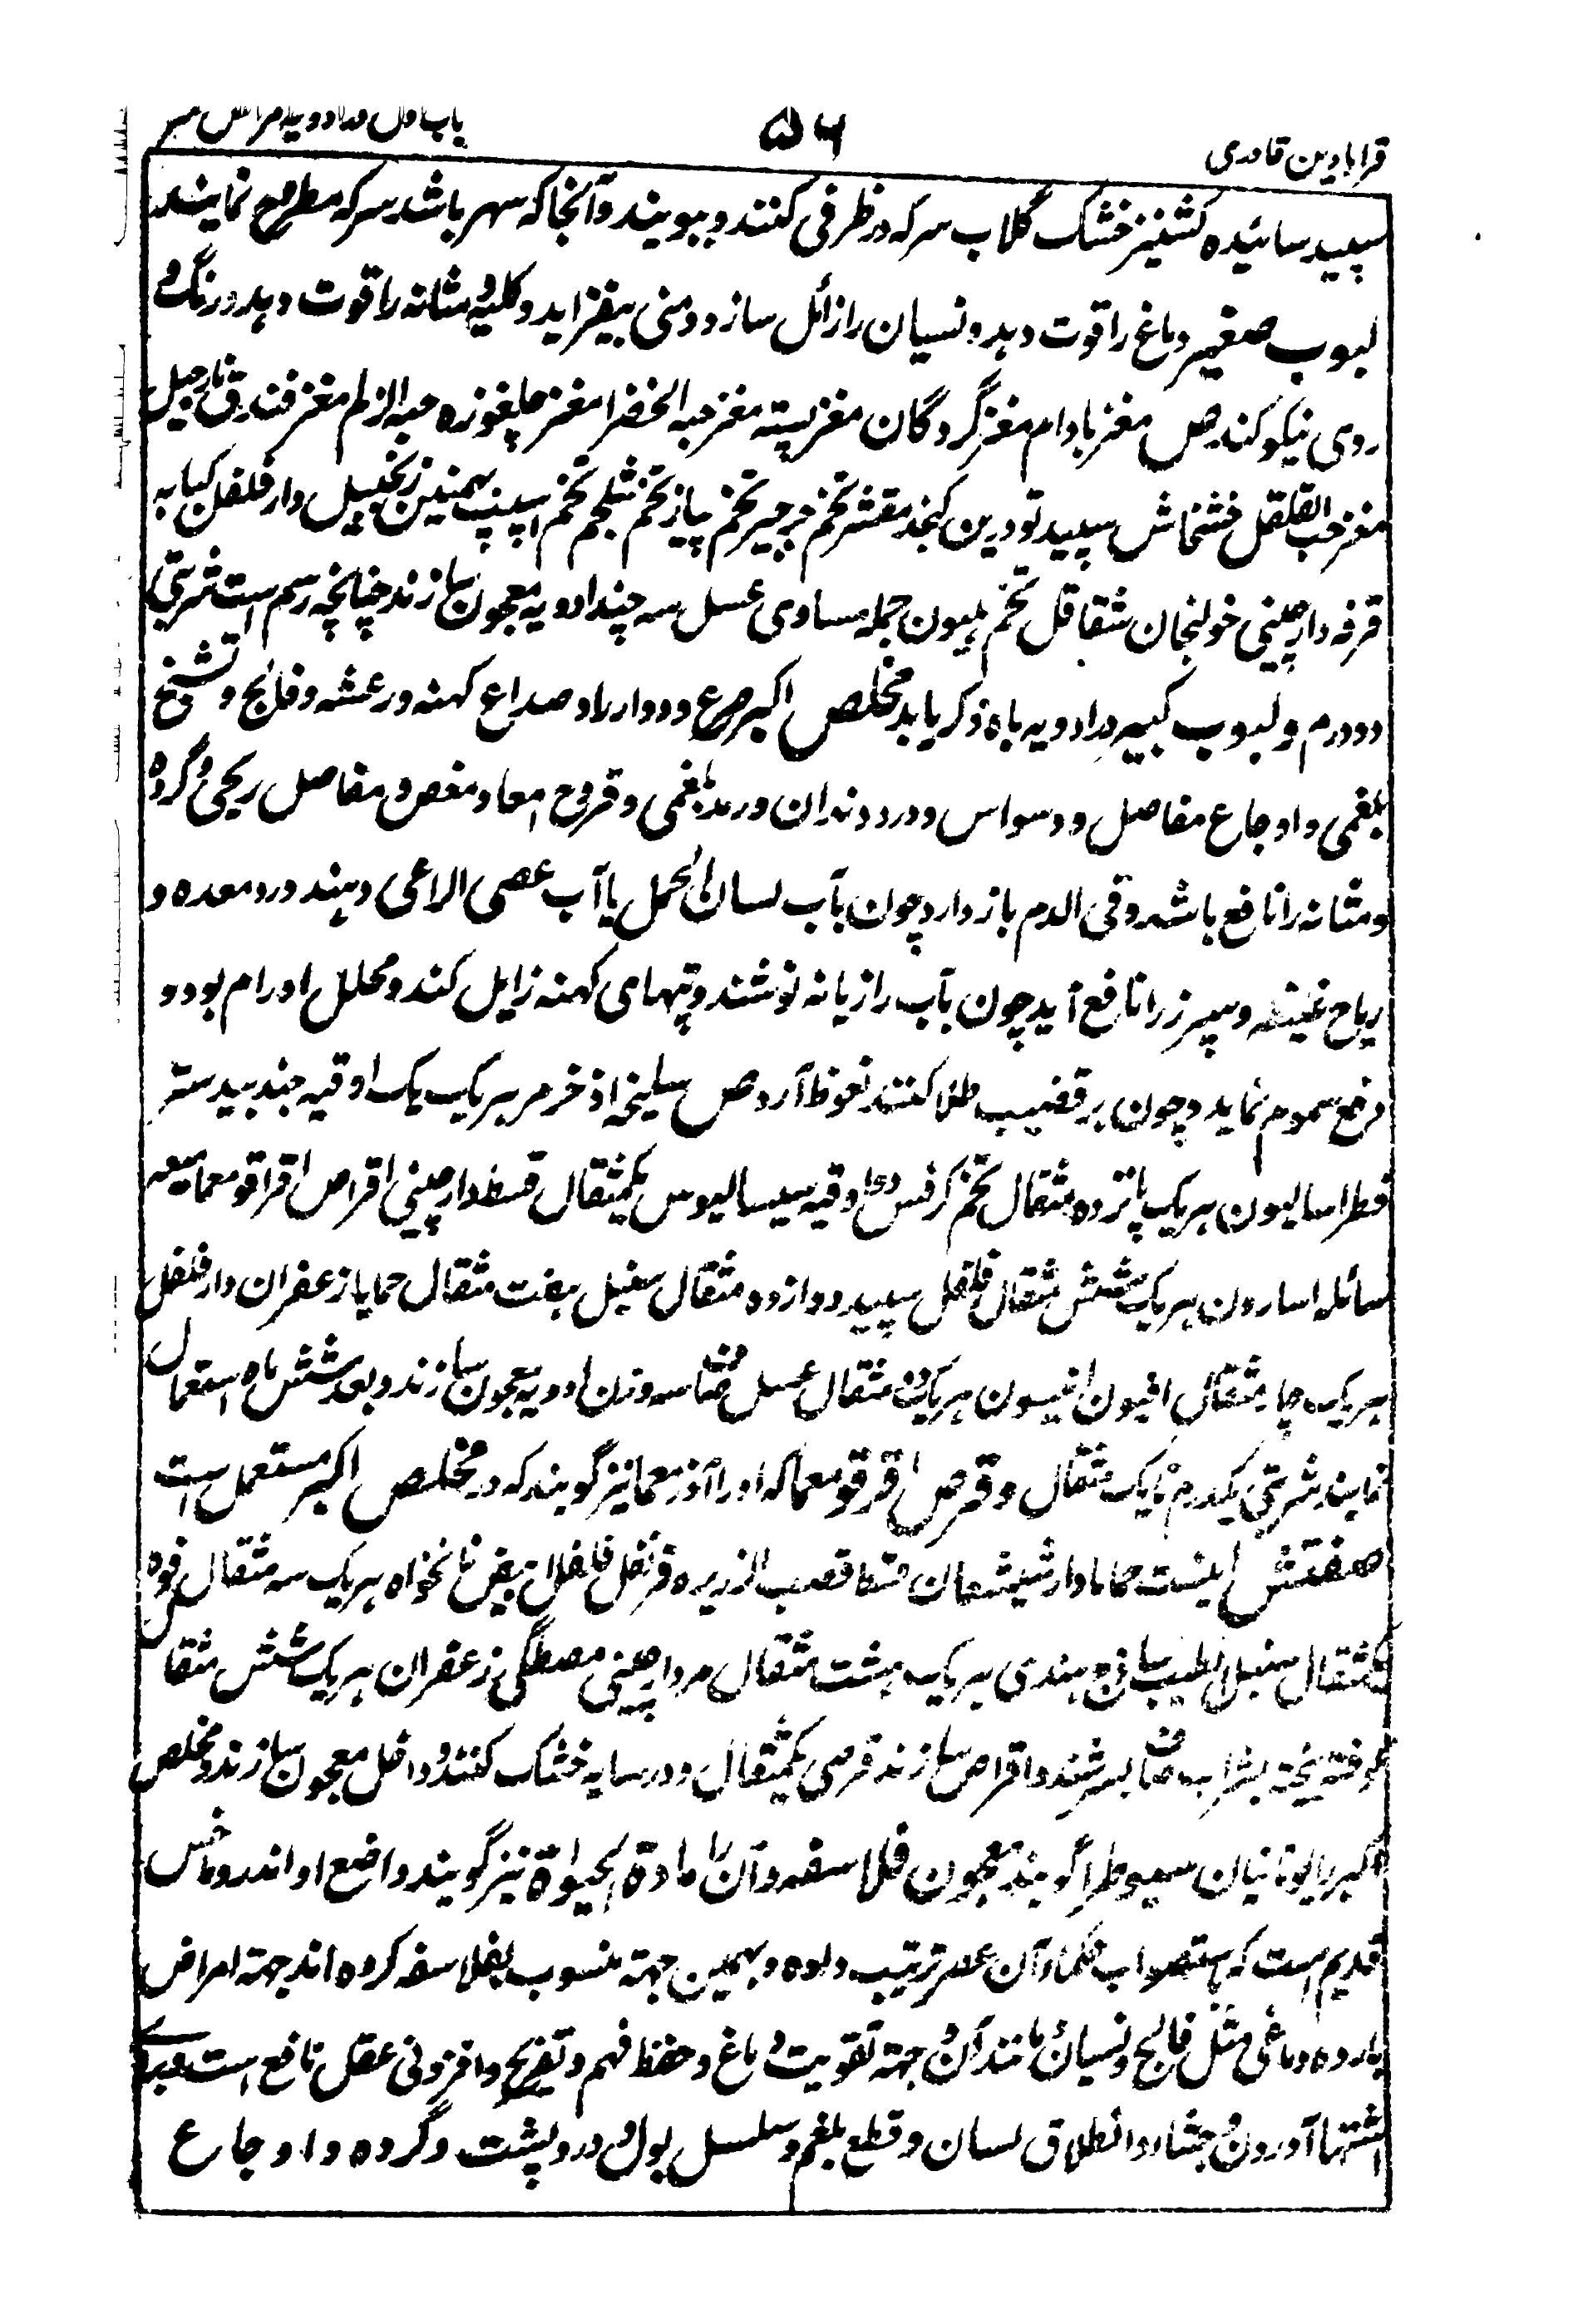 قرابادین قادری
۵۶
باب اول در ادویه امراض سر
سپید سائیده کشنیز خشک گلاب سرکه در ظرفی کنند و ببویند و آنجا که سهر باشد سرکه مطروح نمایند
لبوب صغیر دماغ را قوت دهد و نسیان را زائل سازد و منی بیفزاید و کلیه و مثانه را قوت دهد و رنگ و
روی نیکو کند ص مغز بادام مغز گردگان مغز پسته مغز حبه الخضرا مغز چلغوزه حبه الزلم مغز فندق نارجیل
مغز حب القلقل خشخاش سپید تودرین کنجد مقشر تخم جرجیر تخم پیاز تخم شلجم تخم اسپست بهمنین زنجبیل دارفلفل کبابه
قرفه دارچینی خولنجان شقاقل تخم هلیون جمله مساوی عسل سه چند ادویه معجون سازند چنانچه رسم است شربتی
دو درم و لبوب کبیر در ادویه باه ذکر یابد مخلص اکبر صرع و دوار را و صداع کهنه و رعشه و فالج و تشنج
بلغمی و اوجاع مفاصل و وسواس و درد دندان و رمد بلغمی و قروح امعا و مغص و مفاصل ریحی و گرده
و مثانه را نافع باشد و قی الدم باز دارد چون بآب لسان الحمل یا آب عصی الراعی دهند و درد معده و
ریاح غلیظه و سپرز را نافع آید چون بآب رازیانه نوشند و تپهای کهنه زایل کند و محلل اورام بود و
دفع سموم نماید و چون بر قضیب طلا کنند نعوظ آرد ص سلیخه اذخر مر هر یک یک اوقیه جندبیدستر
فطراسالیون هر یک پانزده مثقال تخم کرفس دو اوقیه سیسالیوس یکمثقال قسط دارچینی اقراص اقراقومعما میعه
سائله اسارون هر یک شش مثقال فلفل سپید دوازده مثقال سنبل هفت مثقال حماما زعفران دارفلفل
هر یک چار مثقال افیون انیسون هر یک دو مثقال عسل مصفا سه وزن ادویه معجون سازند و بعد شش ماه استعمال
نمایند شربتی یکدرم تا یک مثقال و قرص اقرقومعما که او را آذرمعما نیز گویند که در مخلص اکبر مستعمل است
صفتش اینست حماما دارشیشعان قسط قصب الذریره قرنفل فلفل ابیض نانخواه هر یک سه مثقال فوه
یکمثقال سنبل الطیب ساذج هندی هر یک هشت مثقال مر دارچینی مصطگی زعفران هر یک شش مثقال
کوفته بیخته بشراب صاف بسرشند و اقراص سازند قرصی یکمثقال و در سایه خشک کنند و داخل معجون سازند و مخلص
اکبر را یونانیان سعیوطرا گویند معجون فلاسفه و آن را مادة الحیوة نیز گویند واضع او اندروماخس
قدیم است که باستصواب حکماء آن عصر ترتیب داده و بهمین جهته منسوب بفلاسفه کرده اند جهته امراض
بارده دماغی مثل فالج و نسیان و مانند آن و جهته تقویت دماغ و حفظ فهم و تفریح و افزونی عقل نافع است و برای
اشتها آوردن و جشا و انطلاق لسان و قطع بلغم و سلسل بول و درد پشت و گرده و اوجاع